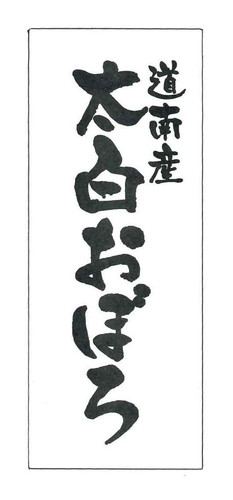 道南産
太白おぼろ